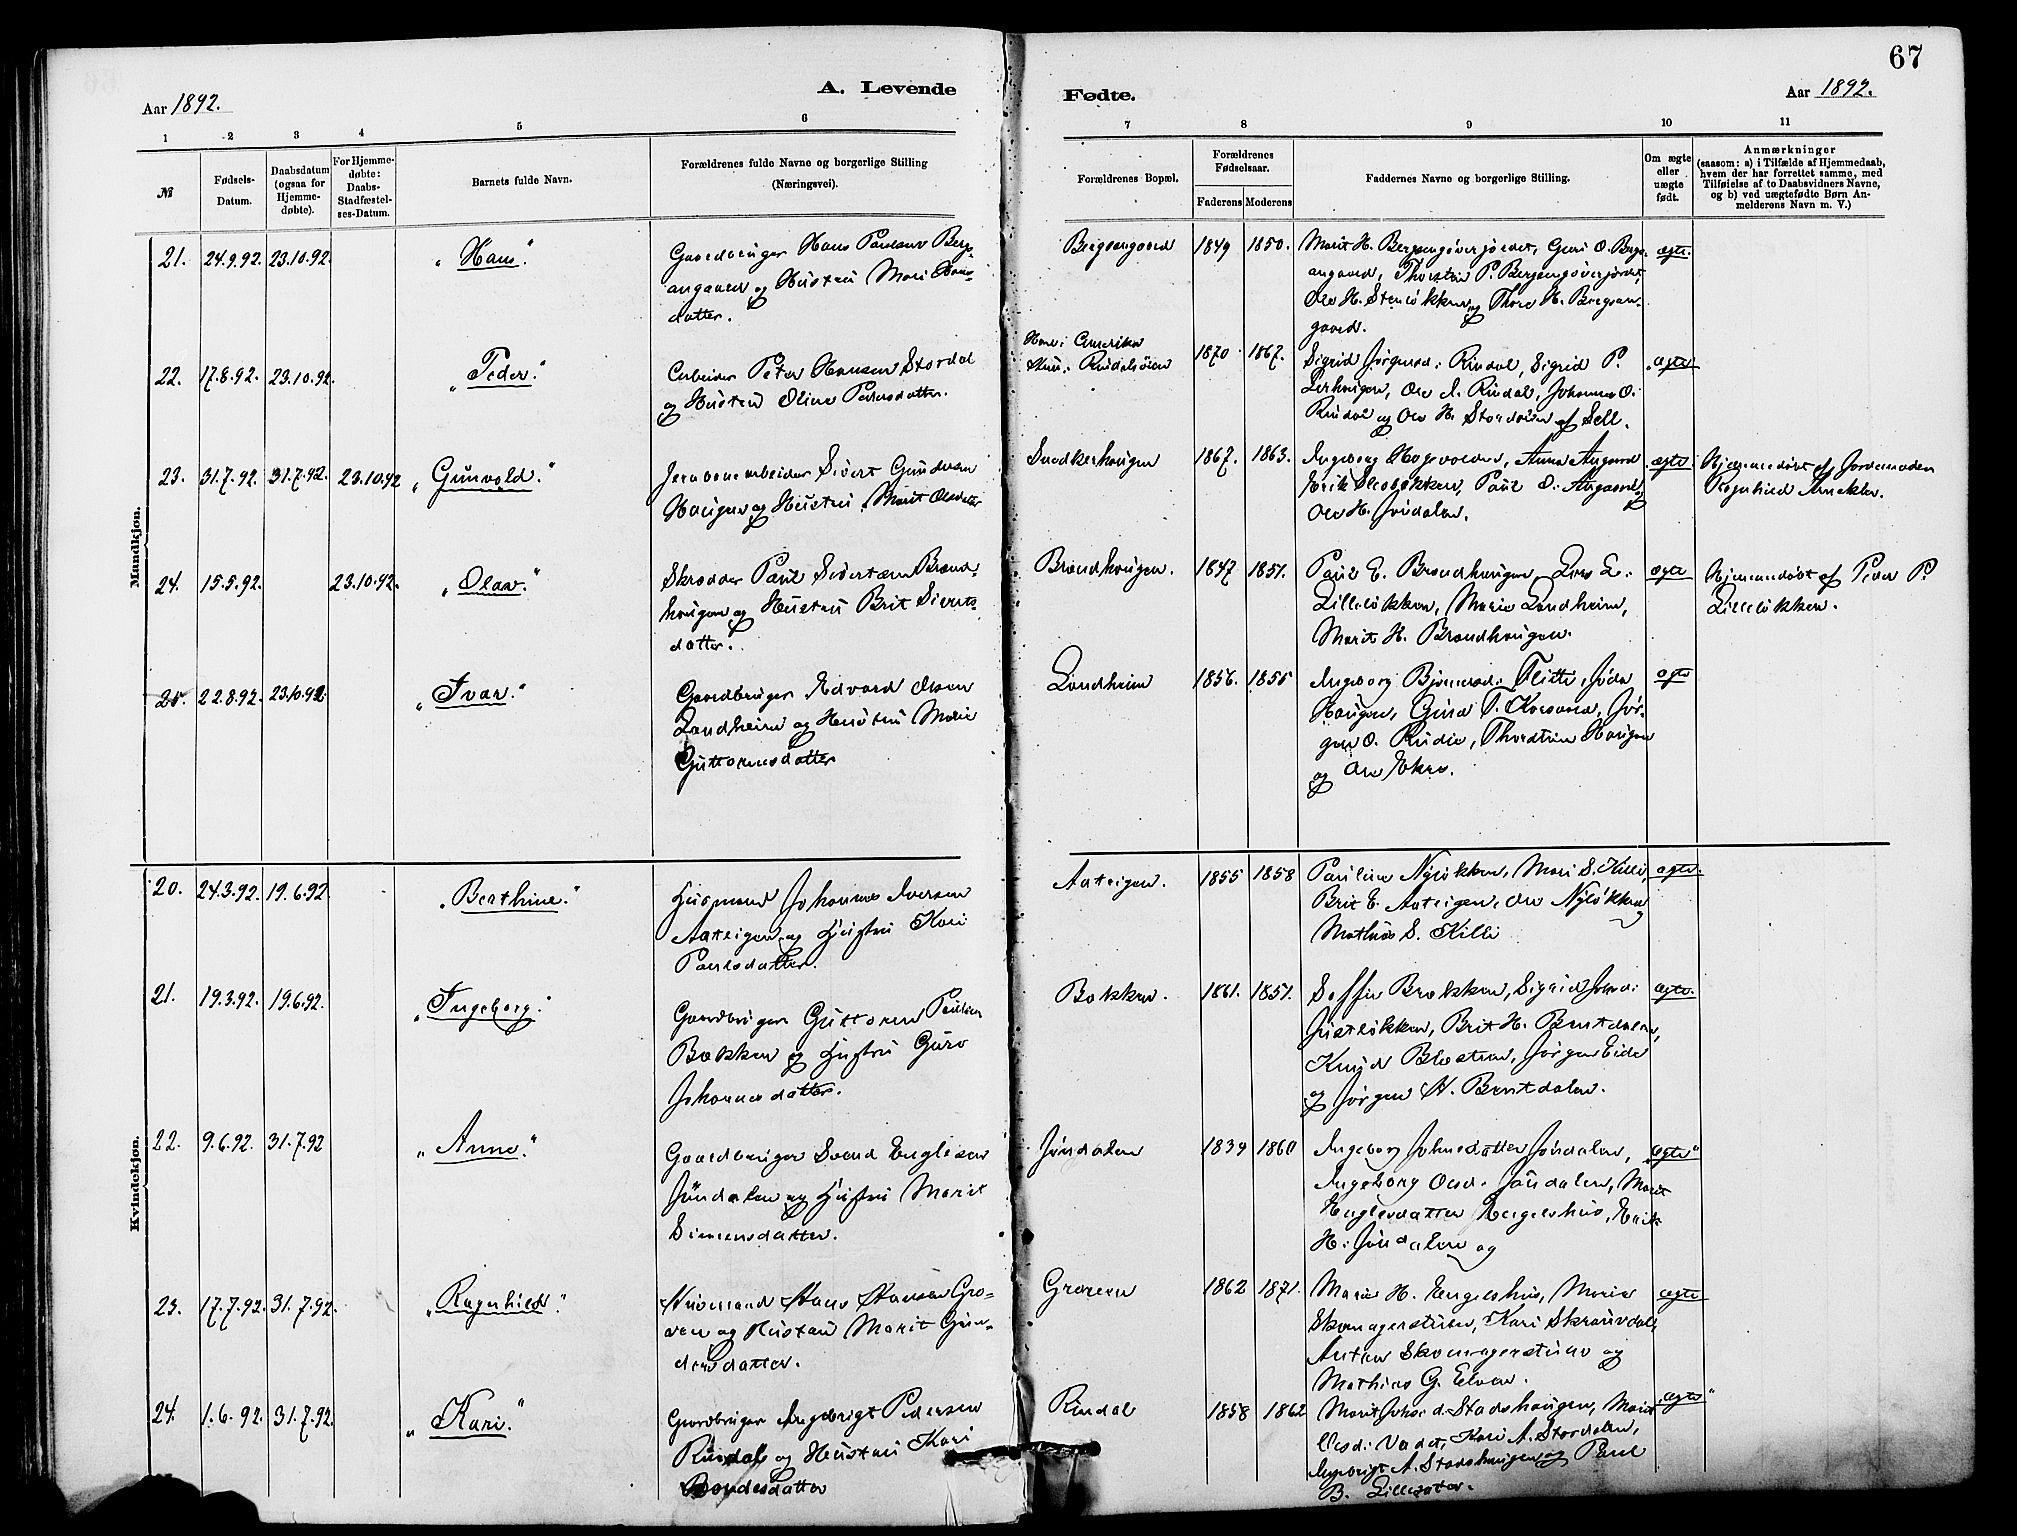 67
Aar 1892.
A. Levende
Fødte.
Aar 1892.
1 2 3 4 5 6 7 8 9 10 11
№
Fødsels-
Datum.
Daabsdatum
(ogsaa for
Hjemme-
døbte).
For Hjemme-
døbte:
Daabs-
Stadfæstel-
ses-Datum.
Barnets fulde Navn.
Forældrenes fulde Navne og borgerlige Stilling
(Næringsvei).
Forældrenes Bopæl.
Forældrenes
Fødselsaar.
Faderens Moderens
Faddernes Navne og borgerlige Stilling.
Om ægte
eller
uægte
født.
Anmærkninger
(saasom: a) i Tilfælde af Hjemmedaab,
hvem der har forrettet samme, med
Tilføielse af to Daabsvidners Navne,
og b) ved uægtefødte Børn An-
melderens Navn m. V.)
Mandkjøn.
21. 24.9.92. 23.10.92. „Hans“
Gaardbruger Hans Paulsen Berg-
angaard og Hustru Mari Hans-
datter.
Bergsengaard 1849 1850.
Marit H. Bergsengöverjordet, Guri O. Berg-
angaard, Thorstein P. Bergsengöverjordet,
Ole H. Stenløkken og Thore H. Bergsen-
gaard.
ægte.
22. 17.8.92. 23.10.92. „Peder.“
Arbeider Peter Hansen Stordal
og Hustru Oline Pedersdatter.
Han i Amerika
Hun: Rindalsöien
1870 1867.
Sigrid Jörgensd: Rindal, Sigrid P.
Lerhougen, Ole J. Rindal, Johannes O.
Rindal og Ole H. Stordalen af Sell.
„ægte
23. 31.7.92. 31.7.92. 23.10.92 „Gunvold.“
Jernbanearbeider Sivert Gundersen
Haugen og Hustru Marit Olsdatter
1867. 1863.
Ingeborg Hagevolden, Anna Aagaard
Paul O. Aagaard og
Ole H. Jöndalen.
ægte.
Hjemmedøbt af Jordemoder
Ragnhild
24. 15.5.92. 23.10.92. „Olav.“
Skrædder Paul Sivertsen Brænd-
hougen og Hustru Brit Siverts-
datter.
Brændhougen. 1847 1851.
Paul E. Brændhougen, Lars L.
Lilleløkken, Marie Landheim,
Marit H. Brændhougen.
ægte
Hjemmedøbt af Peder P.
Lilleløkken.
25. 22.8.92. 23.10.92. „Ivar.“
Gaardbruger Edvard Olsen
Landheim og Hustru Marie
Guttormsdatter
Landheim 1856. 1855
Ingeborg Bjørnersd: Flitti,
Haugen, Guri T. Jör-
gen O. Rudie, Thorstein Haugen
og Ole Ekre.
ægte
Kvindekjøn.
20. 24.3.92. 19.6.92. „Berthine.“
Husmand Johannes Iversen
Aateigen og Hustru Kari
Paulsdatter.
Aateigen. 1855 1858
Pauline Nyløkken, Mari S. Killi,
Brit E. Aateigen, Ole Nyløkken og
Mathias S. Killi
ægte.
21. 19.3.92. 19.6.92. „Ingeborg.“
Gaardbruger Guttorm Paulsen
Bakken og Hustru Guro
Johannesdatter.
Bakken. 1861. 1851.
Soffie Brakken, Sigrid
Brit H. Bentdalen,
Knud Jörgen Eide
og Jörgen H. Bentdalen.
ægte.
22. 9.6.92. 31.7.92 „Anne.“
Gaardbruger Svend Englesen
Jöndalen og Hustru Marit
Simensdatter.
Jöndalen 1839 1860
Ingeborg Johnsdatter Jöndalen,
Ingeborg Olsd. Jöndalen, Marit
Englesdatter Engelshus, Erik
H. Jöndalen og
„ægte“
23. 17.7.92. 31.7.92. „Ragnhild.“
Husmand Hans Hansen Gra-
ven og Hustru Marit Gun-
dersdatter.
Graven 1862 1871.
Mari H. Engelshus, Marie
Skomagerstuen, Kari Skrauvdal,
Anton Skomagerstuen og
Mathias G. Elven.
ægte
24. 1.6.92. 31.7.92. „Kari.“
Gaardbruger Ingebrigt Pedersen
Rindal og Hustru Kari
Baardsdatter
Rindal 1858 1862
Marit Johs: d. Stadshougen, Marit
Olsd: Vadet, Kari A. Stordalen,
Ingebrigt A. Stadshougen og Paul
B. Lillesæter.
„ægte“